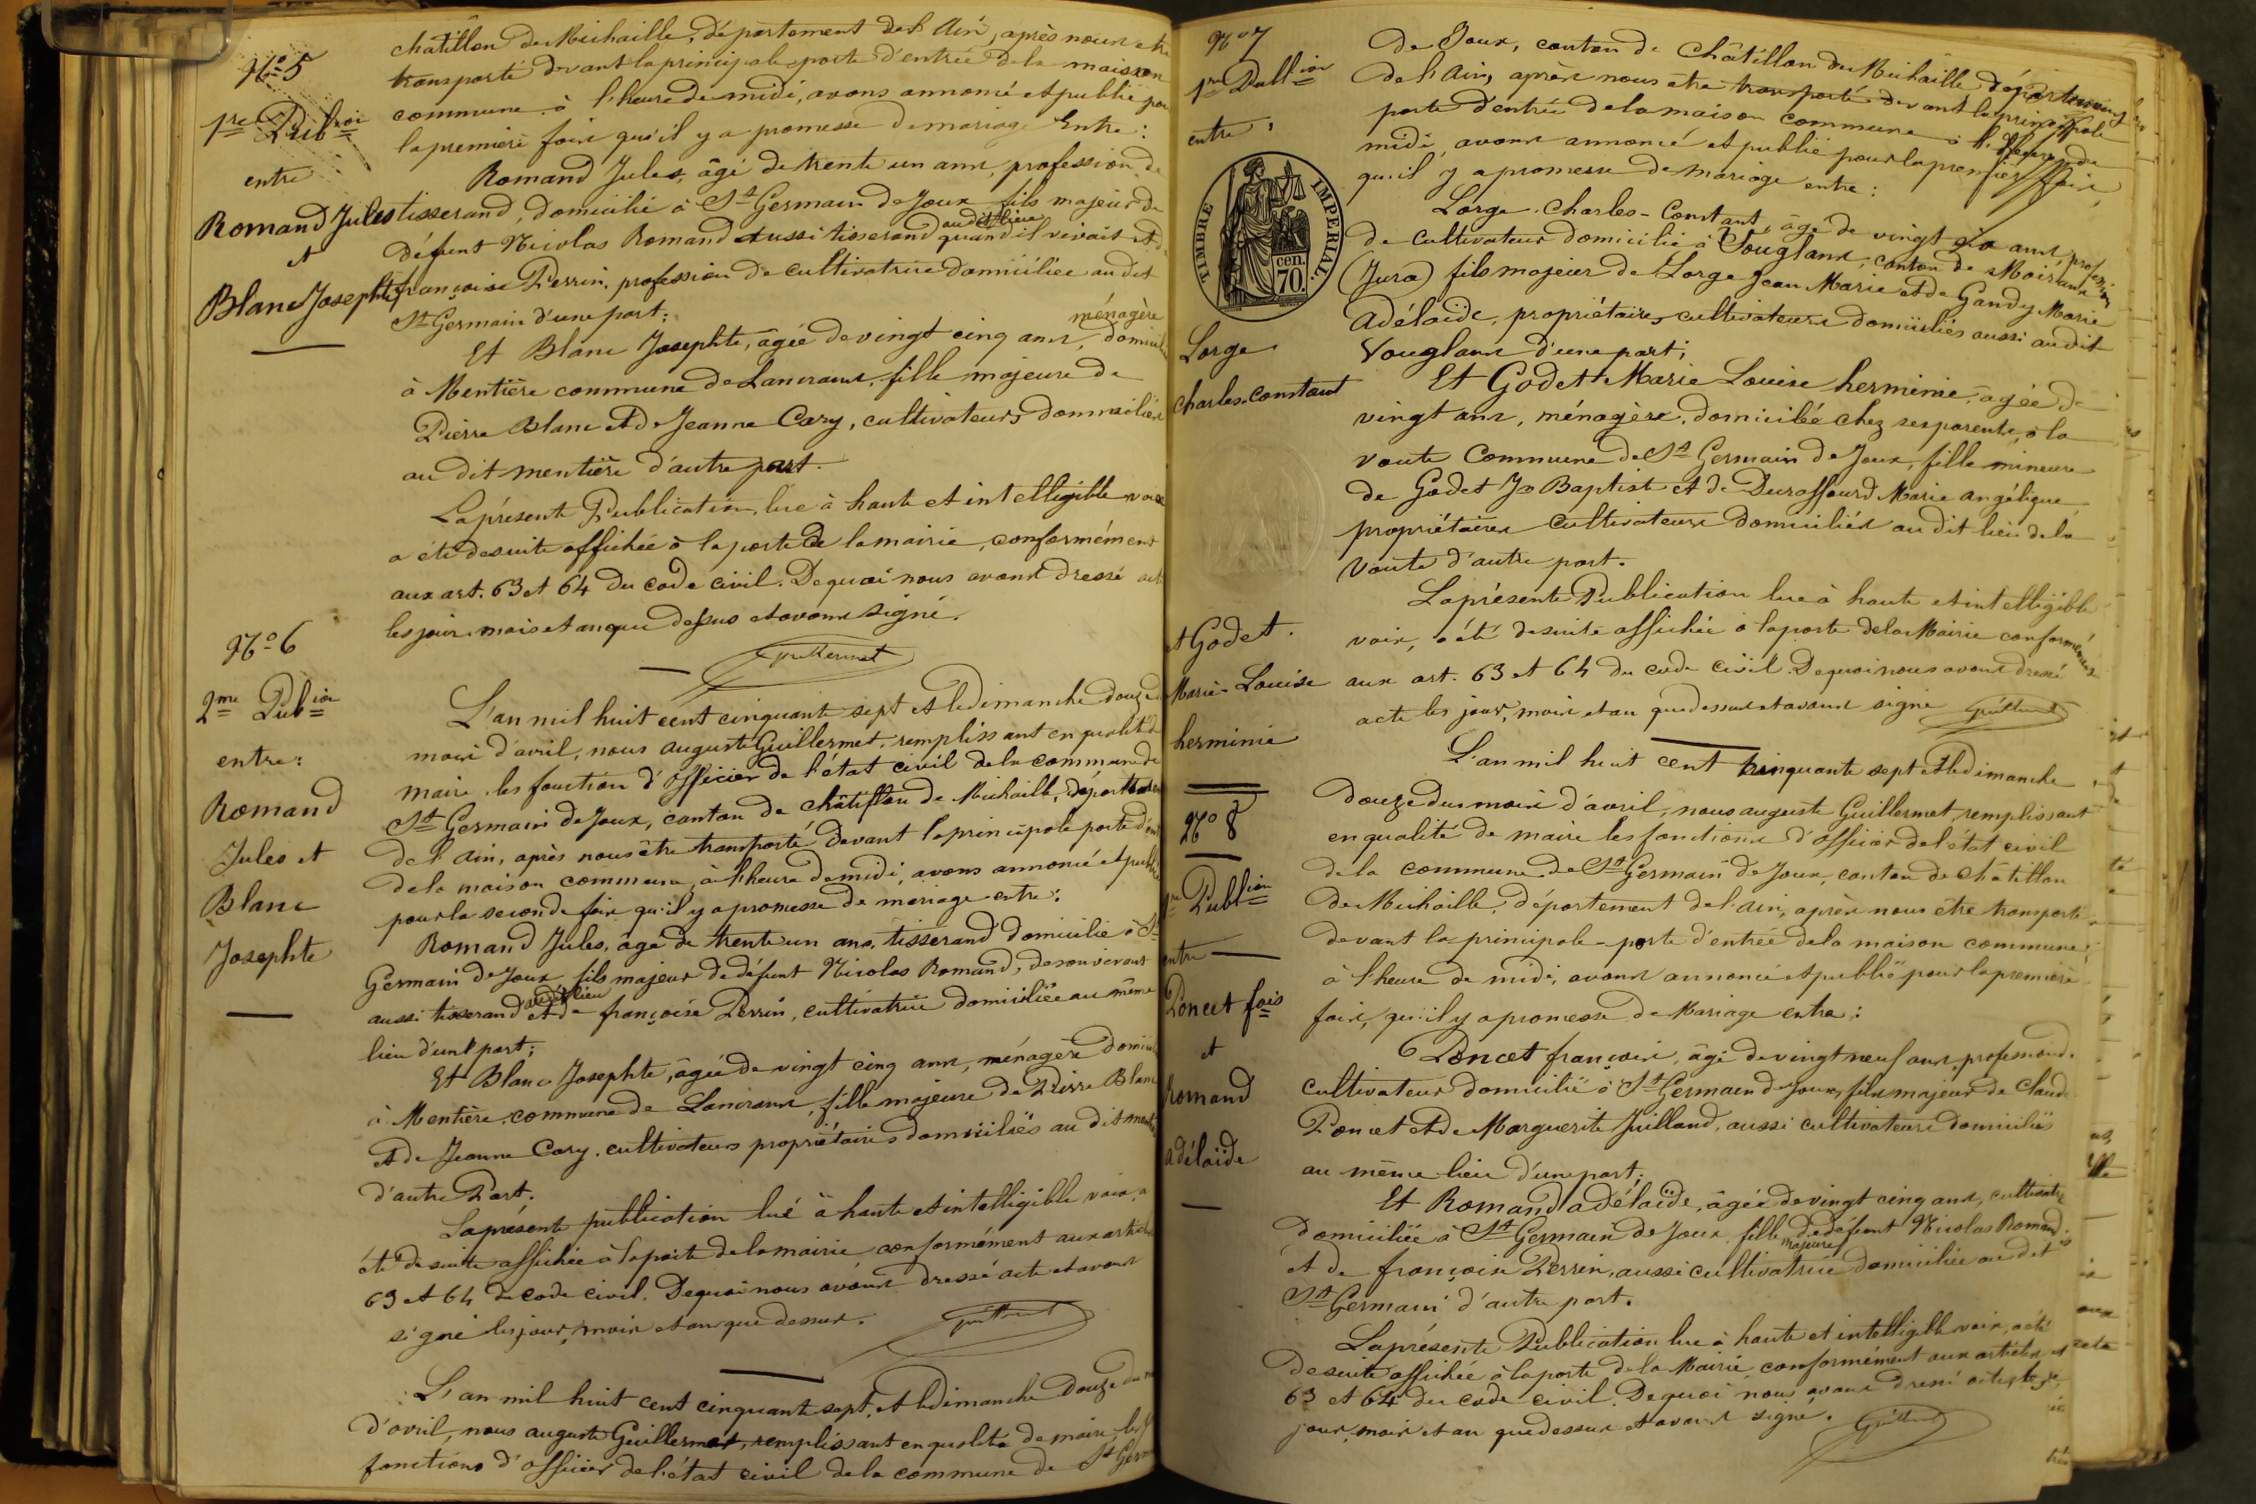 N° 5
1re Pubion
entre
Romand Jules
et
Blanc Josephte
châtillon de Michaille, département de l'Ain, après nous être
transporté devant la principale porte d'entrée de la maison
commune à l'heure de midi, avons annoncé et publié pour
la première fois qu'il y a promesse de mariage Entre:
Romand Jules, âgé de trente un ans, profession de
tisserand, domicilié à St Germain de Joux fils majeur de
défunt Nicolas Romand aussi tisserand au dit lieu quand il vivait et de
françoise Perrin, profession de cultivatrice domiciliée au dit
St Germain d'une part;
Et Blanc Josephte, âgée de vingt cinq ans, ménagère domiciliée
à Mentière commune de Lancrans, fille majeure de
Pierre Blanc et de Jeanne Cary, cultivateurs domiciliés
au dit mentière d'autre part.
La présente Publication, lue à haute et intelligible voix
a été desuite affichée à la porte de la mairie, conformément
aux art. 63 et 64 du code civil. De quoi nous avons dressé acte
les jour, mois et an que dessus et avons signé.
Guillermet
N° 6
2me Pubion
entre:
Romand
Jules et
Blanc
Josephte
L'an mil huit cent cinquante sept et le dimanche douze du
mois d'avril, nous auguste Guillermet, remplissant en qualité de
maire les fonction d'officier de l'état civil de la commune de
St Germain de Joux, canton de châtillon de Michaille, département
de l'ain, après nous être transporté devant la principale porte d'entrée
de la maison commune, à l'heure de midi, avons annoncé et publié
pour la seconde fois qu'il y a promesse de mariage entre:
Romand Jules, âgé de trente un ans, tisserand domicilié à St
Germain de Joux fils majeur de défunt Nicolas Romand, de son vivant
aussi tisserand au dit lieu et de françoise Perrin, cultivatrice domiciliée au même
lieu d'une part;
Et Blanc Josephte, âgée de vingt cinq ans, ménagère domiciliée
à Mentière commune de Lancrans, fille majeure de Pierre Blanc
et de Jeanne Cary, cultivateurs propriétaires domiciliés au dit mentière
d'autre Part.
La présente publication lué à haute et intelligible voix, a
été de suite affichée à la porte de la mairie conformément aux articles
63 et 64 du code civil. De quoi nous avons dressé acte et avons
signé les jour, mois et an que dessus.
Guillermet
L'an mil huit cent cinquante sept, et le dimanche Douze du mois
d'avril, nous auguste Guillermet, remplissant en qualité de maire les
fonctions d'officier de l'état civil de la commune de St Germain
N° 7
1re Publion
entre:
TIMBRE IMPERIAL.
cen.
70.
Lorge
charles-constant
et Godet
Marie-Louise
herminie
de Joux, canton de Châtillon de Michaille département
de l'Ain, après nous être transporté devant la principale
porte d'entrée de la maison commune à l'heure de
midi, avons annoncé et publié pour la première fois
qu'il y a promesse de mariage entre:
Lorge Charles-Constant, âgé de vingt six ans, profession
de cultivateur domicilié à Vouglans, canton de Moirans
(Jura) fils majeur de Lorge Jean Marie et de Gandy Marie
Adélaïde, propriétaires cultivateurs domiciliés aussi au dit
Vouglans d'une part;
Et Godet Marie Louise herminie, âgée de
vingt ans, ménagère, domiciliée chez ses parents, à la
voute Commune de St Germain de Joux, fille mineure
de Godet Jn Baptist et de Duraffourd Marie angélique
propriétaires cultivateurs domiciliés au dit lieu de la
Voute d'autre part.
La présente Publication lue à haute et intelligible
voix, a été de suite affichée à la porte de la Mairie conformément
aux art. 63 et 64 du code civil. De quoi nous avons dressé
acte les jour, mois et an que dessus et avons signé Guillermet
N° 8
1re Publion
entre
Poncet fois
et
Romand
adélaïde
L'an mil huit cent cinquante sept et le dimanche
douze du mois d'avril, nous auguste Guillermet, remplissant
en qualité de maire les fonctions d'officier de l'état civil
de la commune de St Germain de Joux, canton de châtillon
de Michaille, département de l'ain, après nous être transporté
devant la principale porte d'entrée de la maison commune,
à l'heure de midi, avons annoncé et publié pour la première
fois, qu'il y a promesse de Mariage entre:
Poncet françois, âgé de vingt neuf ans, profession de
cultivateur domicilié à St Germain de Joux, fils majeur de Claude
Poncet et de Marguerite Juilland, aussi cultivateurs domiciliés
au même lieu d'une part;
Et Romand adélaïde, âgée de vingt cinq ans, cultivatrice
domiciliée à St Germain de Joux, fille majeure de défunt Nicolas Romand
et de françoise Perrin, aussi cultivatrice domiciliée au dit
St Germain d'autre part.
La présente Publication lue à haute et intelligible voix, a été
de suite affichée à la porte de la Mairie conformément aux articles
63 et 64 du code civil. De quoi nous avons dressé acte les
jour, mois et an que dessus et avons signé. Guillermet